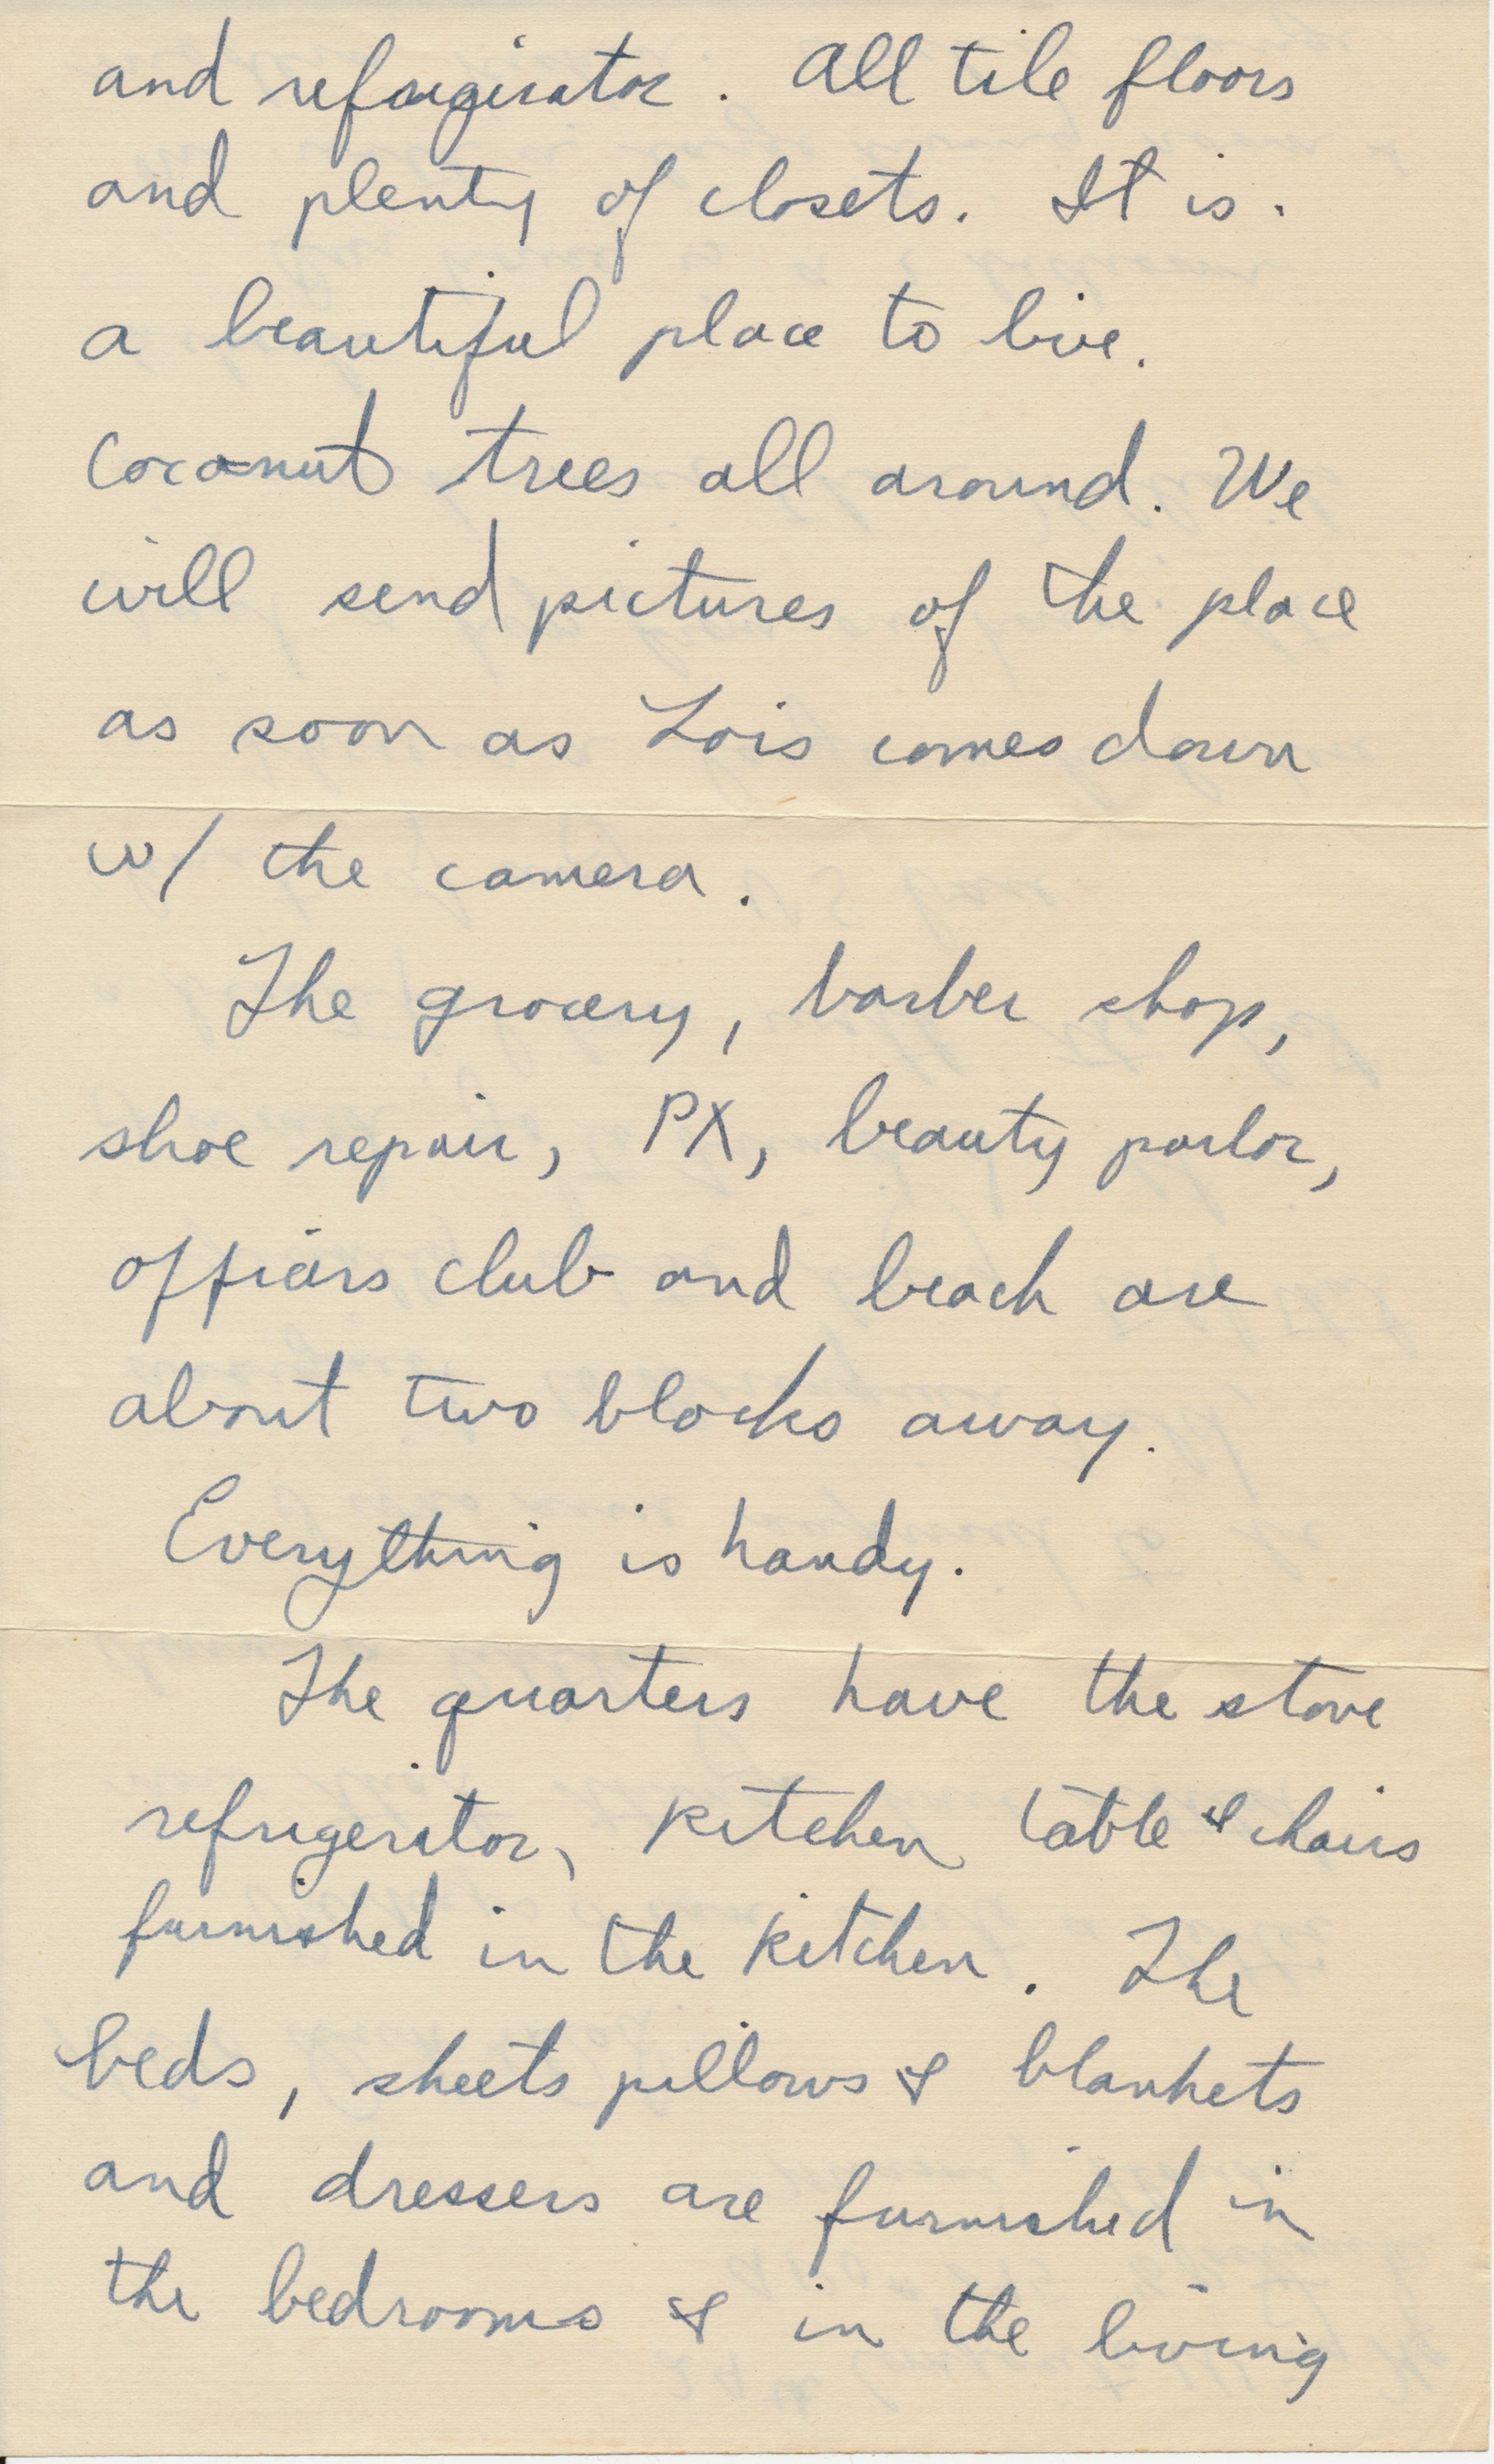 and refrigirator. All tile floors
and plenty of closets. It is.
a beautiful place to live.
Coconut trees all around. We
will send pictures of the place
as soon as Lois comes down
w/ the camera.
The grocery, barber shop,
shoe repair, PX, beauty parlor,
officers club and beach are
about two blocks away.
Everything is handy.
The quarters have the stove
refrigerator, kitchen table & chairs
furnished in the kitchen. The
beds, sheets pillows & blankets
and dressers are furnished in
the bedrooms & in the living